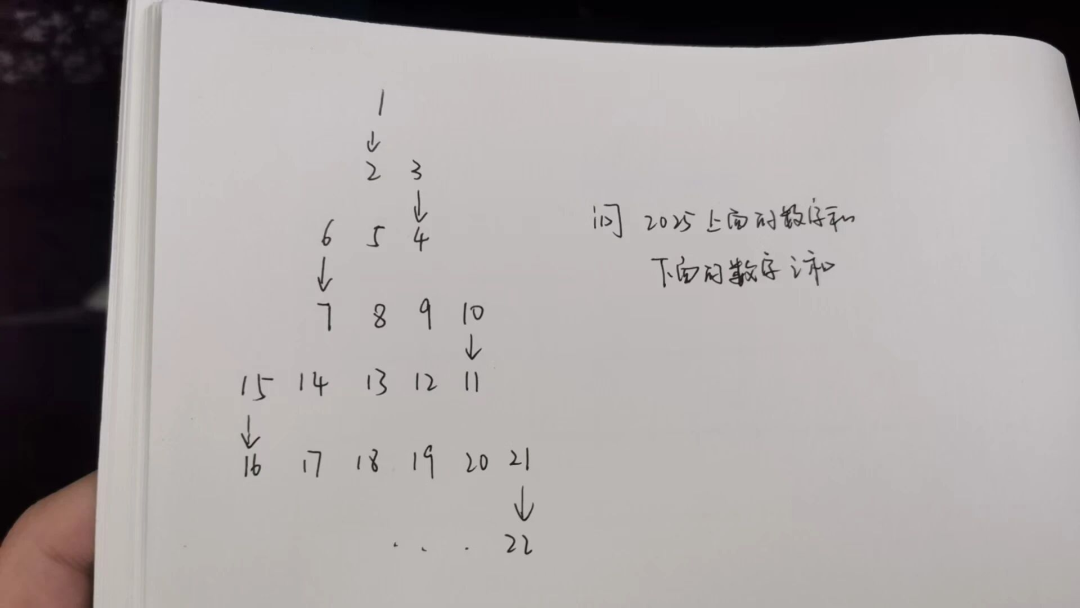 1
↓
2 3
↓
6 5 4
↓
7 8 9 10
↓
15 14 13 12 11
↓
16 17 18 19 20 21
↓
. . . 22
问 2025上面的数字和
下面的数字之和